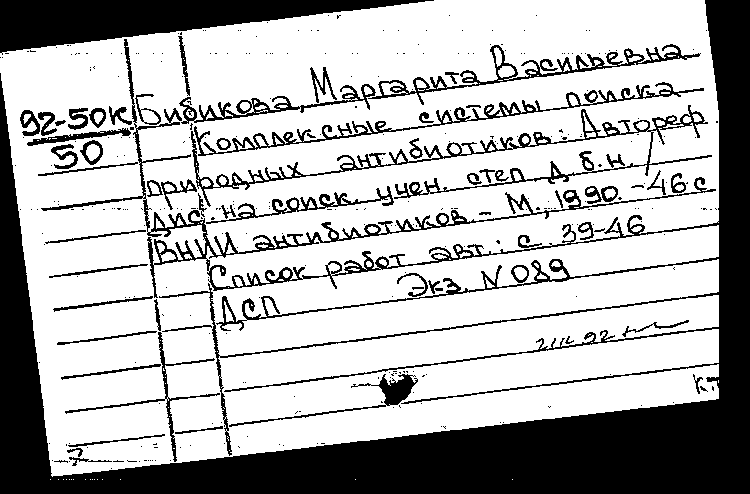 92-50к
50
Бибикова, Маргарита Васильевна
Комплексные системы поиска
природных антибиотиков: Автореф.
дис. на соиск. учен. степ д. б.н. /
ВНИИ антибиотиков. - М., 1990. - 46 с
Список работ авт.: с. 39-46
ДСП Экз. N 089
92